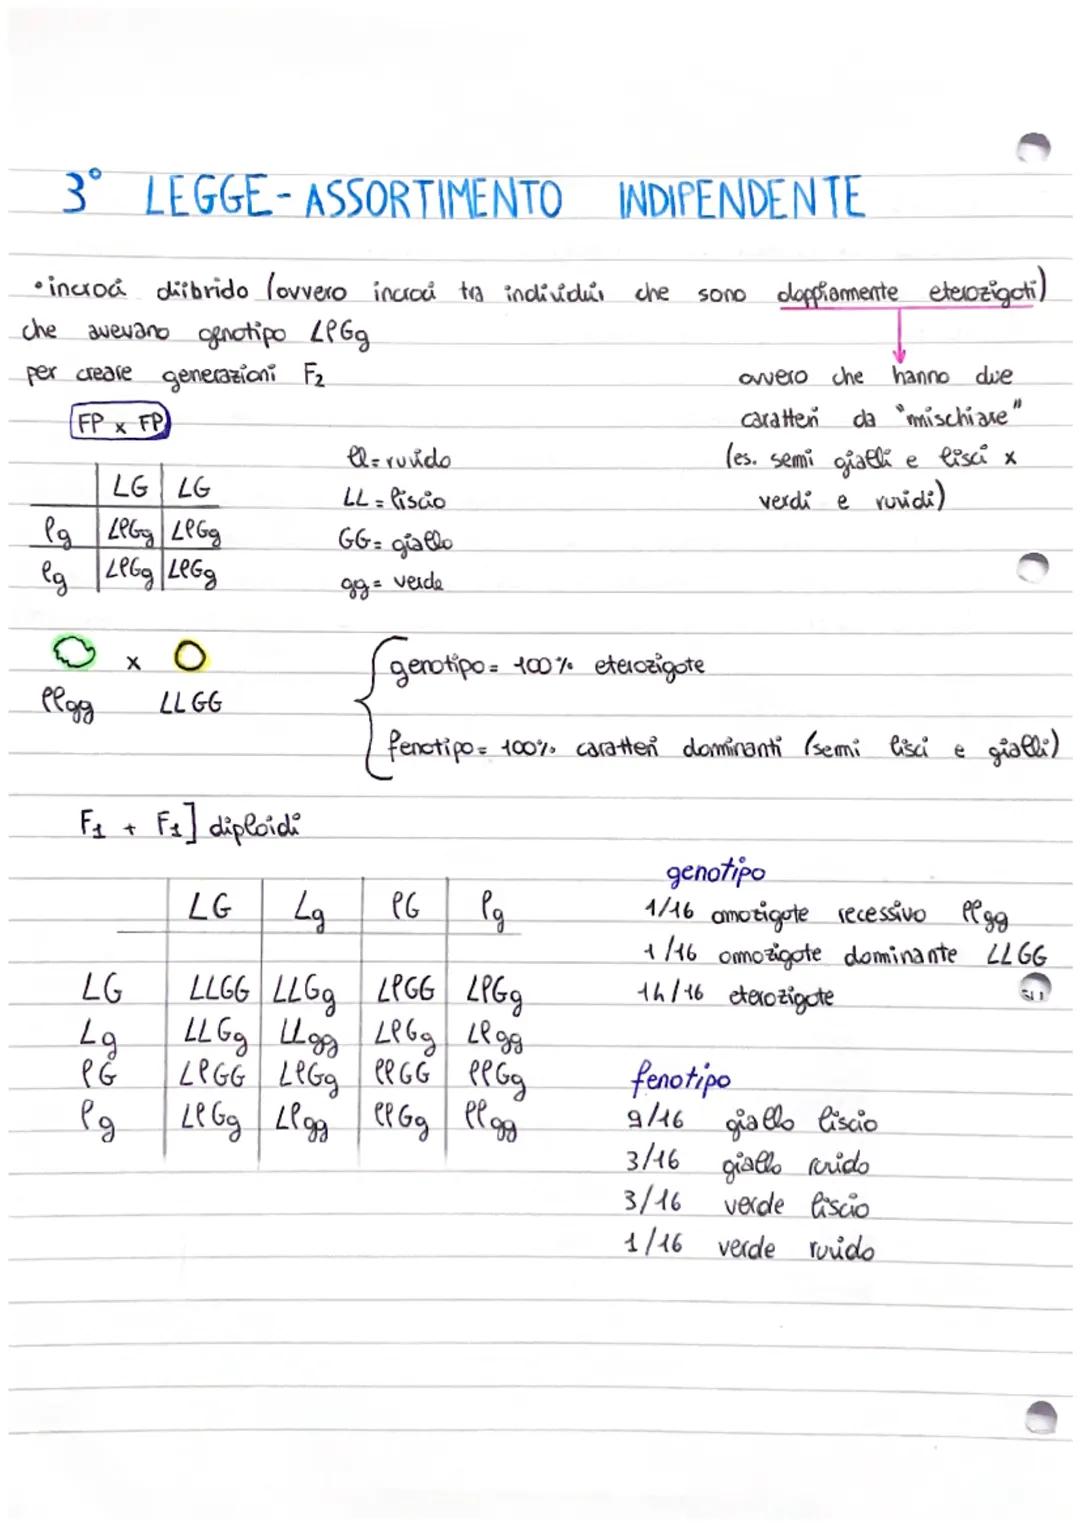 3° LEGGE - ASSORTIMENTO INDIPENDENTE
• incroci diibrido (ovvero incroci tra individui che sono doppiamente eterozigoti)
che avevano genotipo LlGg
per creare generazioni F2
ovvero che hanno due
caratteri da "mischiare"
(es. semi gialli e lisci x
verdi e ruvidi)
FP x FP
LG LG
lg LlGg LlGg
lg LlGg LlGg
ll = ruvido
LL = liscio
GG = giallo
gg = verde
x
llgg LLGG
genotipo = 100% eterozigote
fenotipo = 100% caratteri dominanti (semi lisci e gialli)
F1 + F1] diploidi
LG Lg lG lg
LG LLGG LLGg LlGG LlGg
Lg LLGg LLgg LlGg Llgg
lG LlGG LlGg llGG llGg
lg LlGg Llgg llGg llgg
genotipo
1/16 omozigote recessivo llgg
1/16 omozigote dominante LLGG
14/16 eterozigote
fenotipo
9/16 giallo liscio
3/16 giallo ruvido
3/16 verde liscio
1/16 verde ruvido